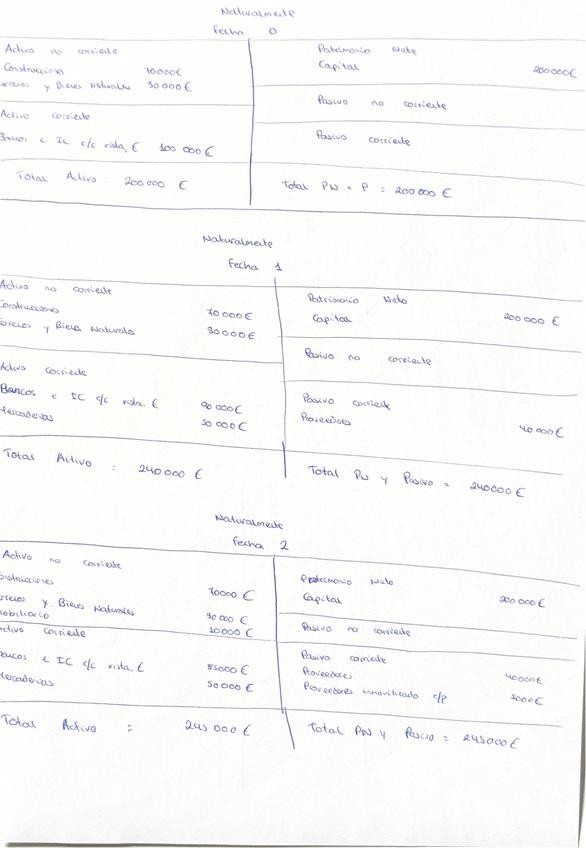 Naturalmente
Fecha 0
Activo no corriente
Construcciones 70000€
y Bienes Naturales 30000€
Activo corriente
Bancos e IC c/c vista, € 100 000 €
Total Activo = 200 000 €
Patrimonio Neto
Capital 200000€
Pasivo no corriente
Pasivo corriente
Total PN + P = 200 000 €
Naturalmente
Fecha 1
Activo no corriente
Construcciones 70 000€
Terrenos y Bienes Naturales 30000€
Activo Corriente
Bancos e IC c/c vista. € 90 000€
Mercaderias 50 000€
Total Activo = 240 000 €
Patrimonio Neto
Capital 200 000 €
Pasivo no corriente
Pasivo corriente
Proveedores 40 000€
Total PN y Pasivo = 240000 €
Naturalmente
Fecha 2
Activo no corriente
Construcciones 70000 €
y Bienes Naturales 30 000 €
Mobiliario 10000 €
Activo corriente
Bancos e IC c/c vista. € 85000€
Mercaderias 50 000 €
Total Activo = 245 000 €
Patrimonio Neto
Capital 200 000 €
Pasivo no corriente
Pasivo corriente
Proveedores 40000€
Proveedores inmovilizado c/p 5000€
Total PN y Pasivo = 245000 €